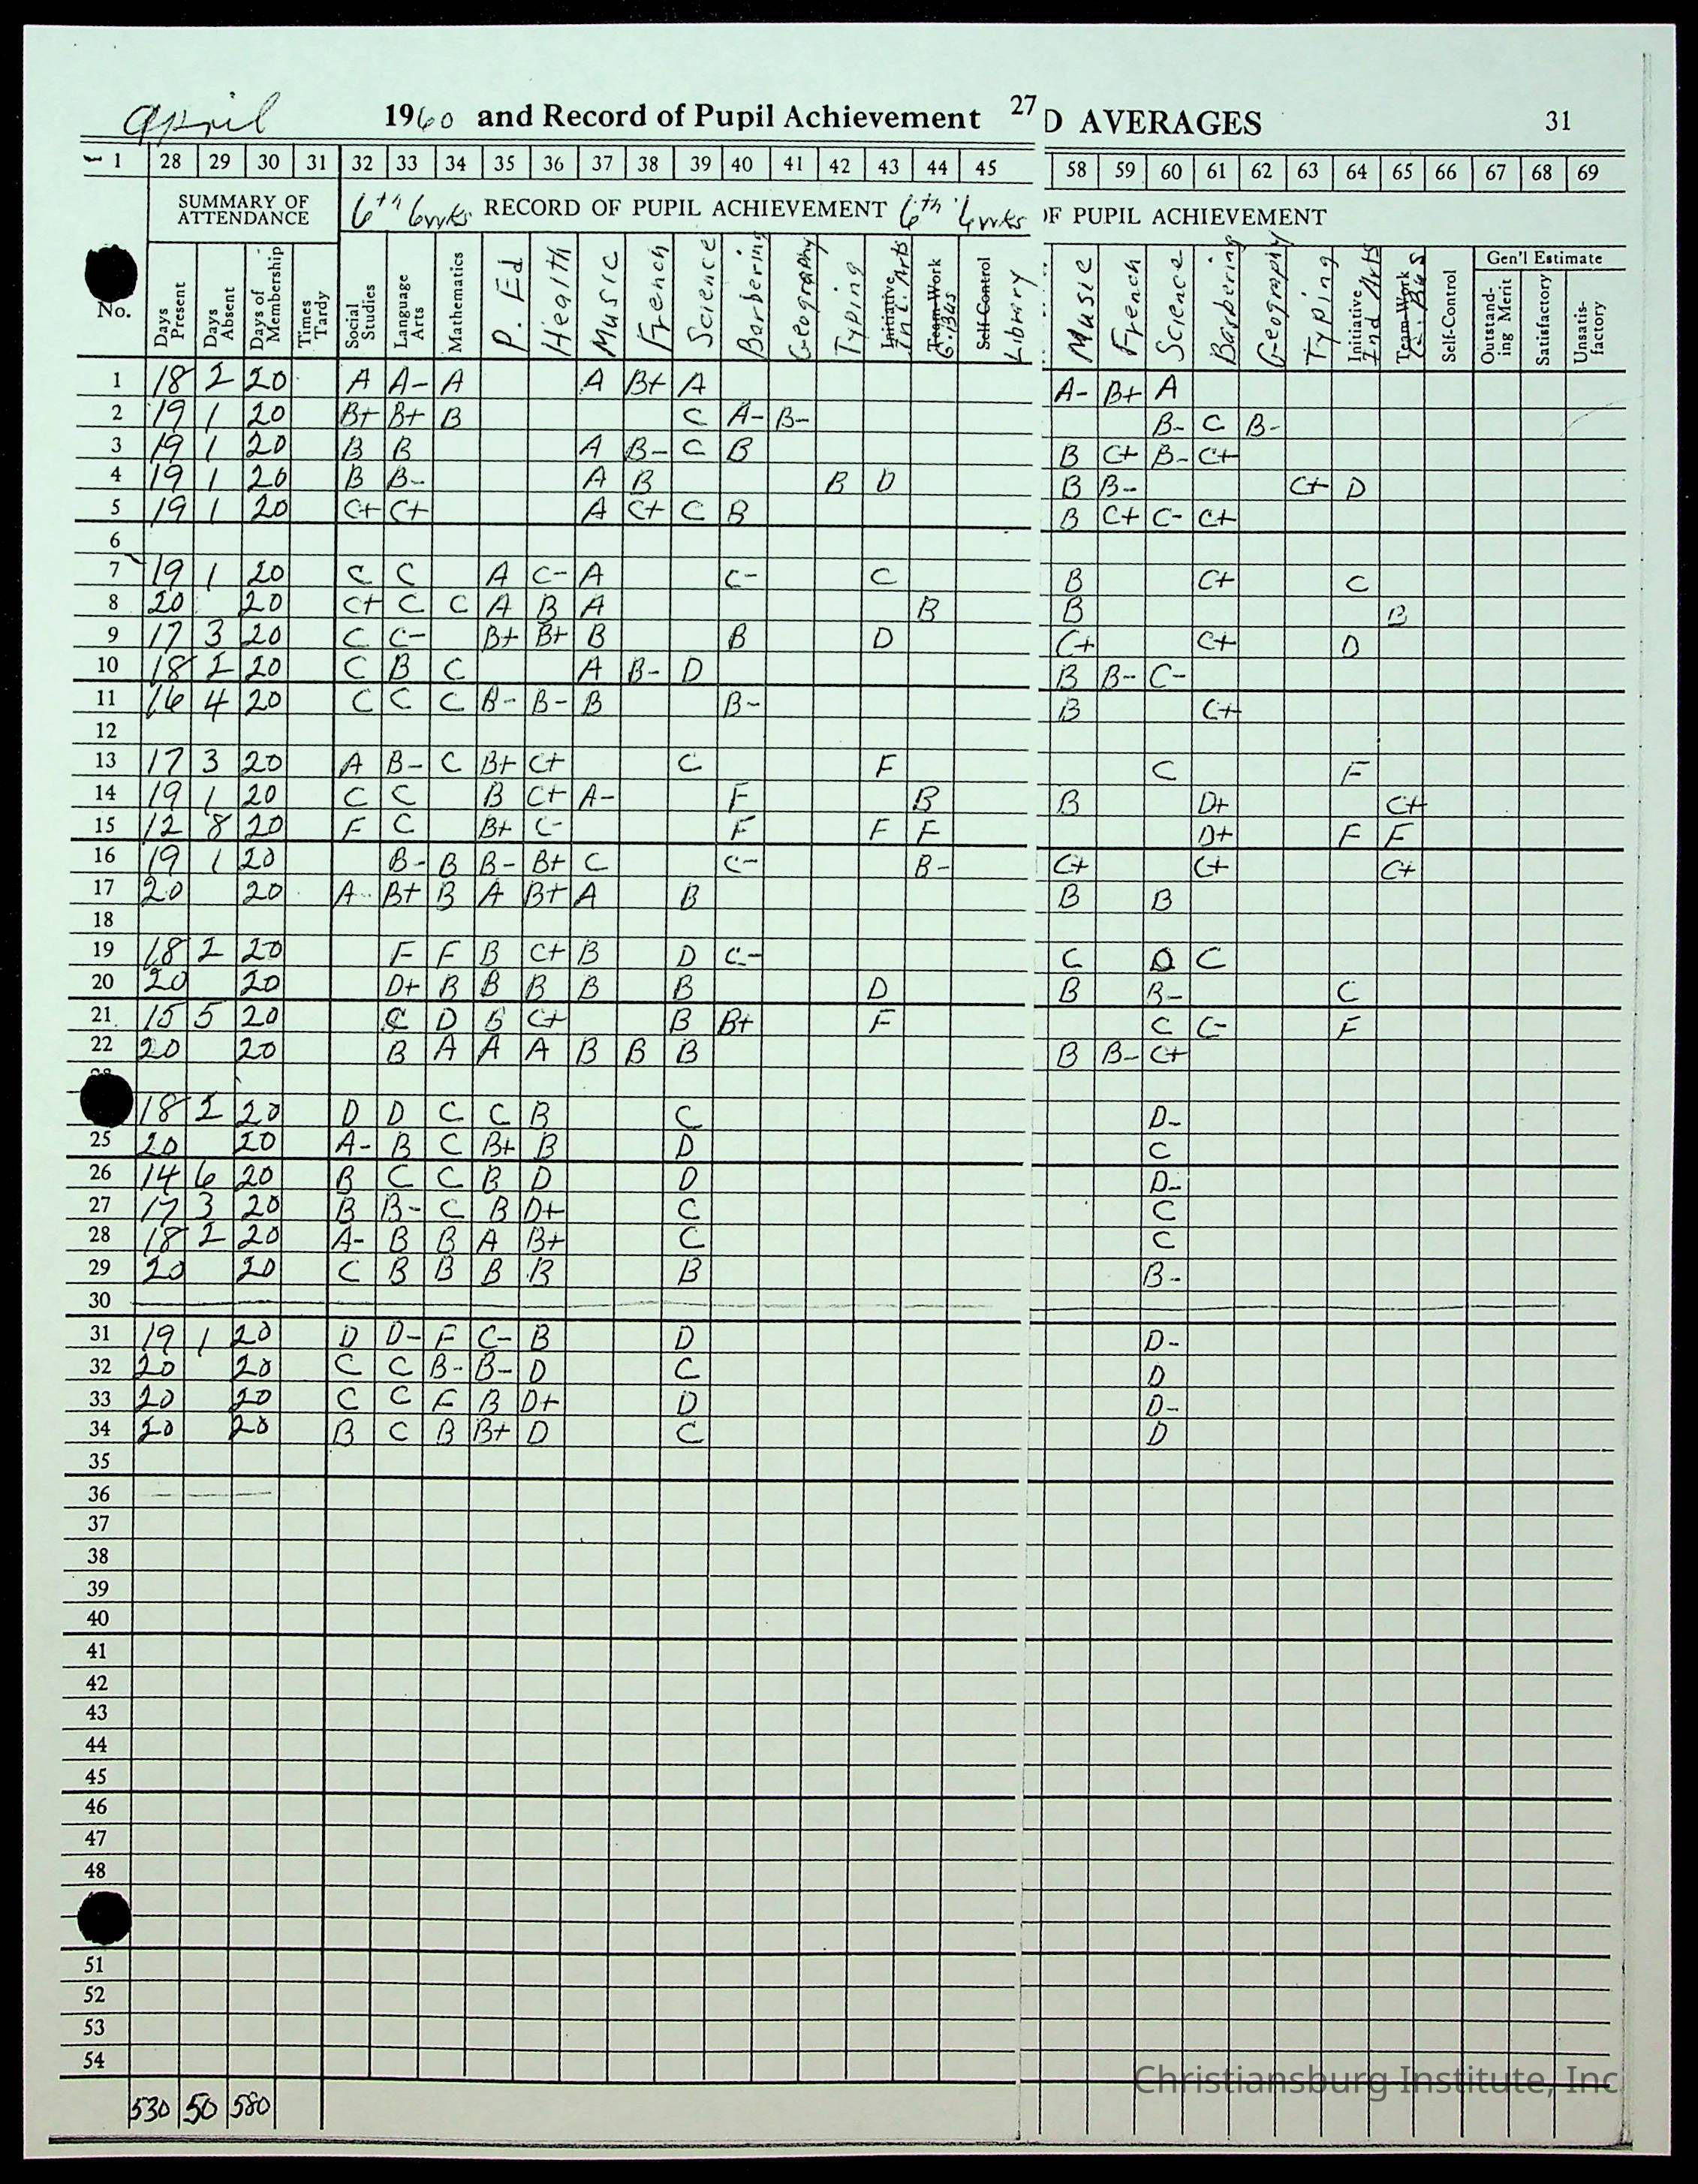 April 1960 and Record of Pupil Achievement 27 D AVERAGES 31
1 28 29 30 31 32 33 34 35 36 37 38 39 40 41 42 43 44 45 58 59 60 61 62 63 64 65 66 67 68 69
SUMMARY OF ATTENDANCE 6th 6wks. RECORD OF PUPIL ACHIEVEMENT 6th 6wks OF PUPIL ACHIEVEMENT
Gen'l Estimate
No. Days Present Days Absent Days of Membership Times Tardy Social Studies Language Arts Mathematics P. Ed Health Music French Science Barbering Geography Typing Initiative Ind. Arts Team-Work G. Bus Self-Control Library Music French Science Barbering Geography Typing Initiative Ind Arts Team-Work G. Bus Self-Control Outstanding Merit Satisfactory Unsatisfactory
1 18 2 20 A A- A A B+ A A- B+ A
2 19 1 20 B+ B+ B C A- B- B- C B-
3 19 1 20 B B A B- C B B C+ B- C+
4 19 1 20 B B- A B B D B B- C+ D
5 19 1 20 C+ C+ A C+ C B B C+ C- C+
6
7 19 1 20 C C A C- A C- C B C+ C
8 20 20 C+ C C A B A B B B
9 17 3 20 C C- B+ B+ B B D C+ C+ D
10 18 2 20 C B C A B- D B B- C-
11 16 4 20 C C C B- B- B B- B C+
12
13 17 3 20 A B- C B+ C+ C F C F
14 19 1 20 C C B C+ A- F B B D+ C+
15 12 8 20 F C B+ C- F F F D+ F F
16 19 1 20 B- B B- B+ C C- B- C+ C+ C+
17 20 20 A B+ B A B+ A B B B
18
19 18 2 20 F F B C+ B D C- C D C
20 20 20 D+ B B B B B D B B- C
21 15 5 20 C D B C+ B B+ F C C- F
22 20 20 B A A A B B B B B- C+
18 2 20 D D C C B C D-
25 20 20 A- B C B+ B D C
26 14 6 20 B C C B D D D-
27 17 3 20 B B- C B D+ C C
28 18 2 20 A- B B A B+ C C
29 20 20 C B B B B B B-
30
31 19 1 20 D D- F C- B D D-
32 20 20 C C B- B- D C D
33 20 20 C C F B D+ D D-
34 20 20 B C B B+ D C D
35
36
37
38
39
40
41
42
43
44
45
46
47
48
51
52
53
54
530 50 580
Christiansburg Institute, Inc